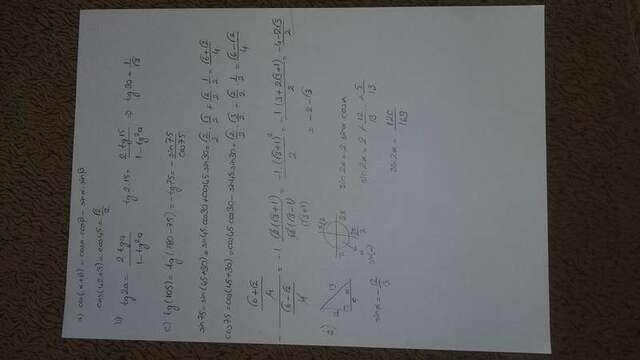 a) cos(α+β) = cosα·cosβ - sinα·sinβ
cos(42+3) = cos45 = √2/2
b) tg2α = 2tgα / 1-tg²α tg2·15 = 2tg15 / 1-tg²α ⇒ tg30 = 1/√3
c) tg(105) = tg(180-75) = -tg75 = - sin75/cos75
sin75 = sin(45+30) = sin45 cos30 + cos45 sin30 = √2/2 √3/2 + √2/2 1/2 = √6+√2/4
cos75 = cos(45+30) = cos45 cos30 - sin45 sin30 = √2/2 √3/2 - √2/2 1/2 = √6-√2/4
- √6+√2/4 / √6-√2/4 = -1 √2(√3+1) / √2(√3-1) (√3+1) = -1(√3+1)²/2 = -1(3+2√3+1)/2 = -4-2√3/2
= -2-√3
2)
13
12
5
sin2x = 2·sinx cosx
sin2x = 2 · 12/13 · 5/13
sin2x = 120/169